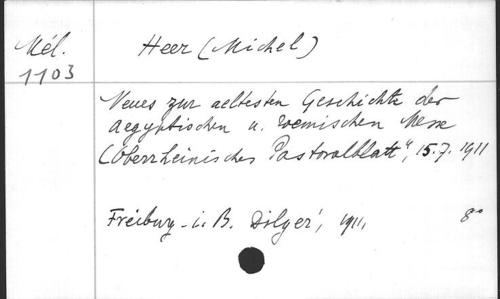 Mél.
1103
Heer (Michel)
Neues zur aeltesten Geschichte der
aegyptischen u. roemischen Messe
(Oberrheinisches Pastoralblatt", 15.7.1911
Freiburg-i. B. Dilger, 1911, 8°